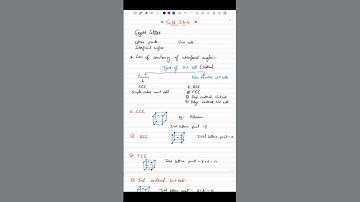 * Solid State *
Crystal Lattice
Lattice point - Unit cell -
Interfacial angles -
* Law of constancy of interfacial angles -
Types of Unit cell / Lattice
Primitive Non Primitive Unit cell
SCC ① BCC
Simple cubic unit cell ② FCC
③ End centered Unit cell
④ Edge centered Unit cell
① SCC
eg - Polonium
Total lattice point - 8
② BCC Total lattice point - 9
③ FCC
Total lattice point - 8 + 6 = 14
④ End centered Unit Cell -
Total lattice point - 8 + 2 = 10